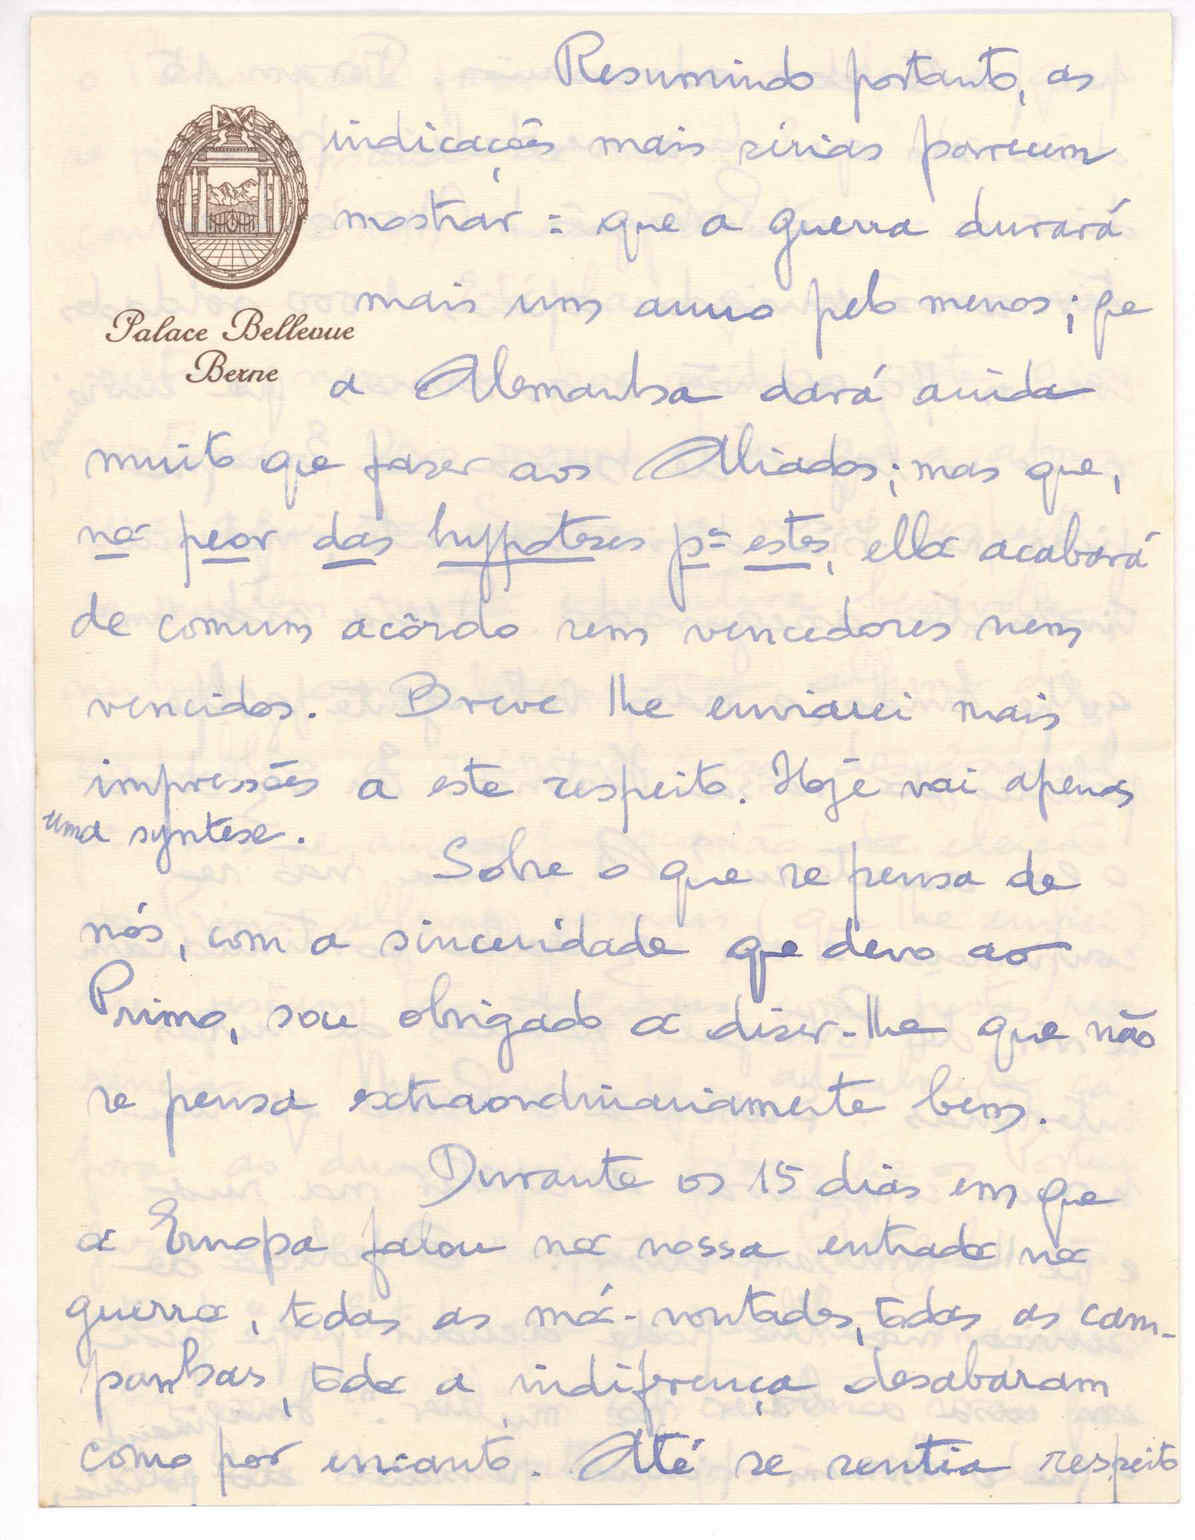 Resumindo portanto, as
indicações mais sérias parecem
mostrar: que a guerra durará
Palace Bellevue
Berne
mais um anno pelo menos; qe
a Alemanha dará ainda
muito que faser aos Aliados; mas que,
na peor das hypoteses pª estes, ella acabará
de comum acôrdo sem vencedores nem
vencidos. Breve lhe enviarei mais
impressões a este respeito. Hoje vai apenas
uma syntese.
Sobre o que se pensa de
nós, com a sinceridade que devo ao
Primo, sou obrigado a diser-lhe que não
se pensa extraordinariamente bem.
Durante os 15 dias em que
a Europa falou na nossa entrada na
guerra, todas as má-vontades, todas as cam-
panhas, toda a indiferença desabaram
como por encanto. Até se sentia respeito